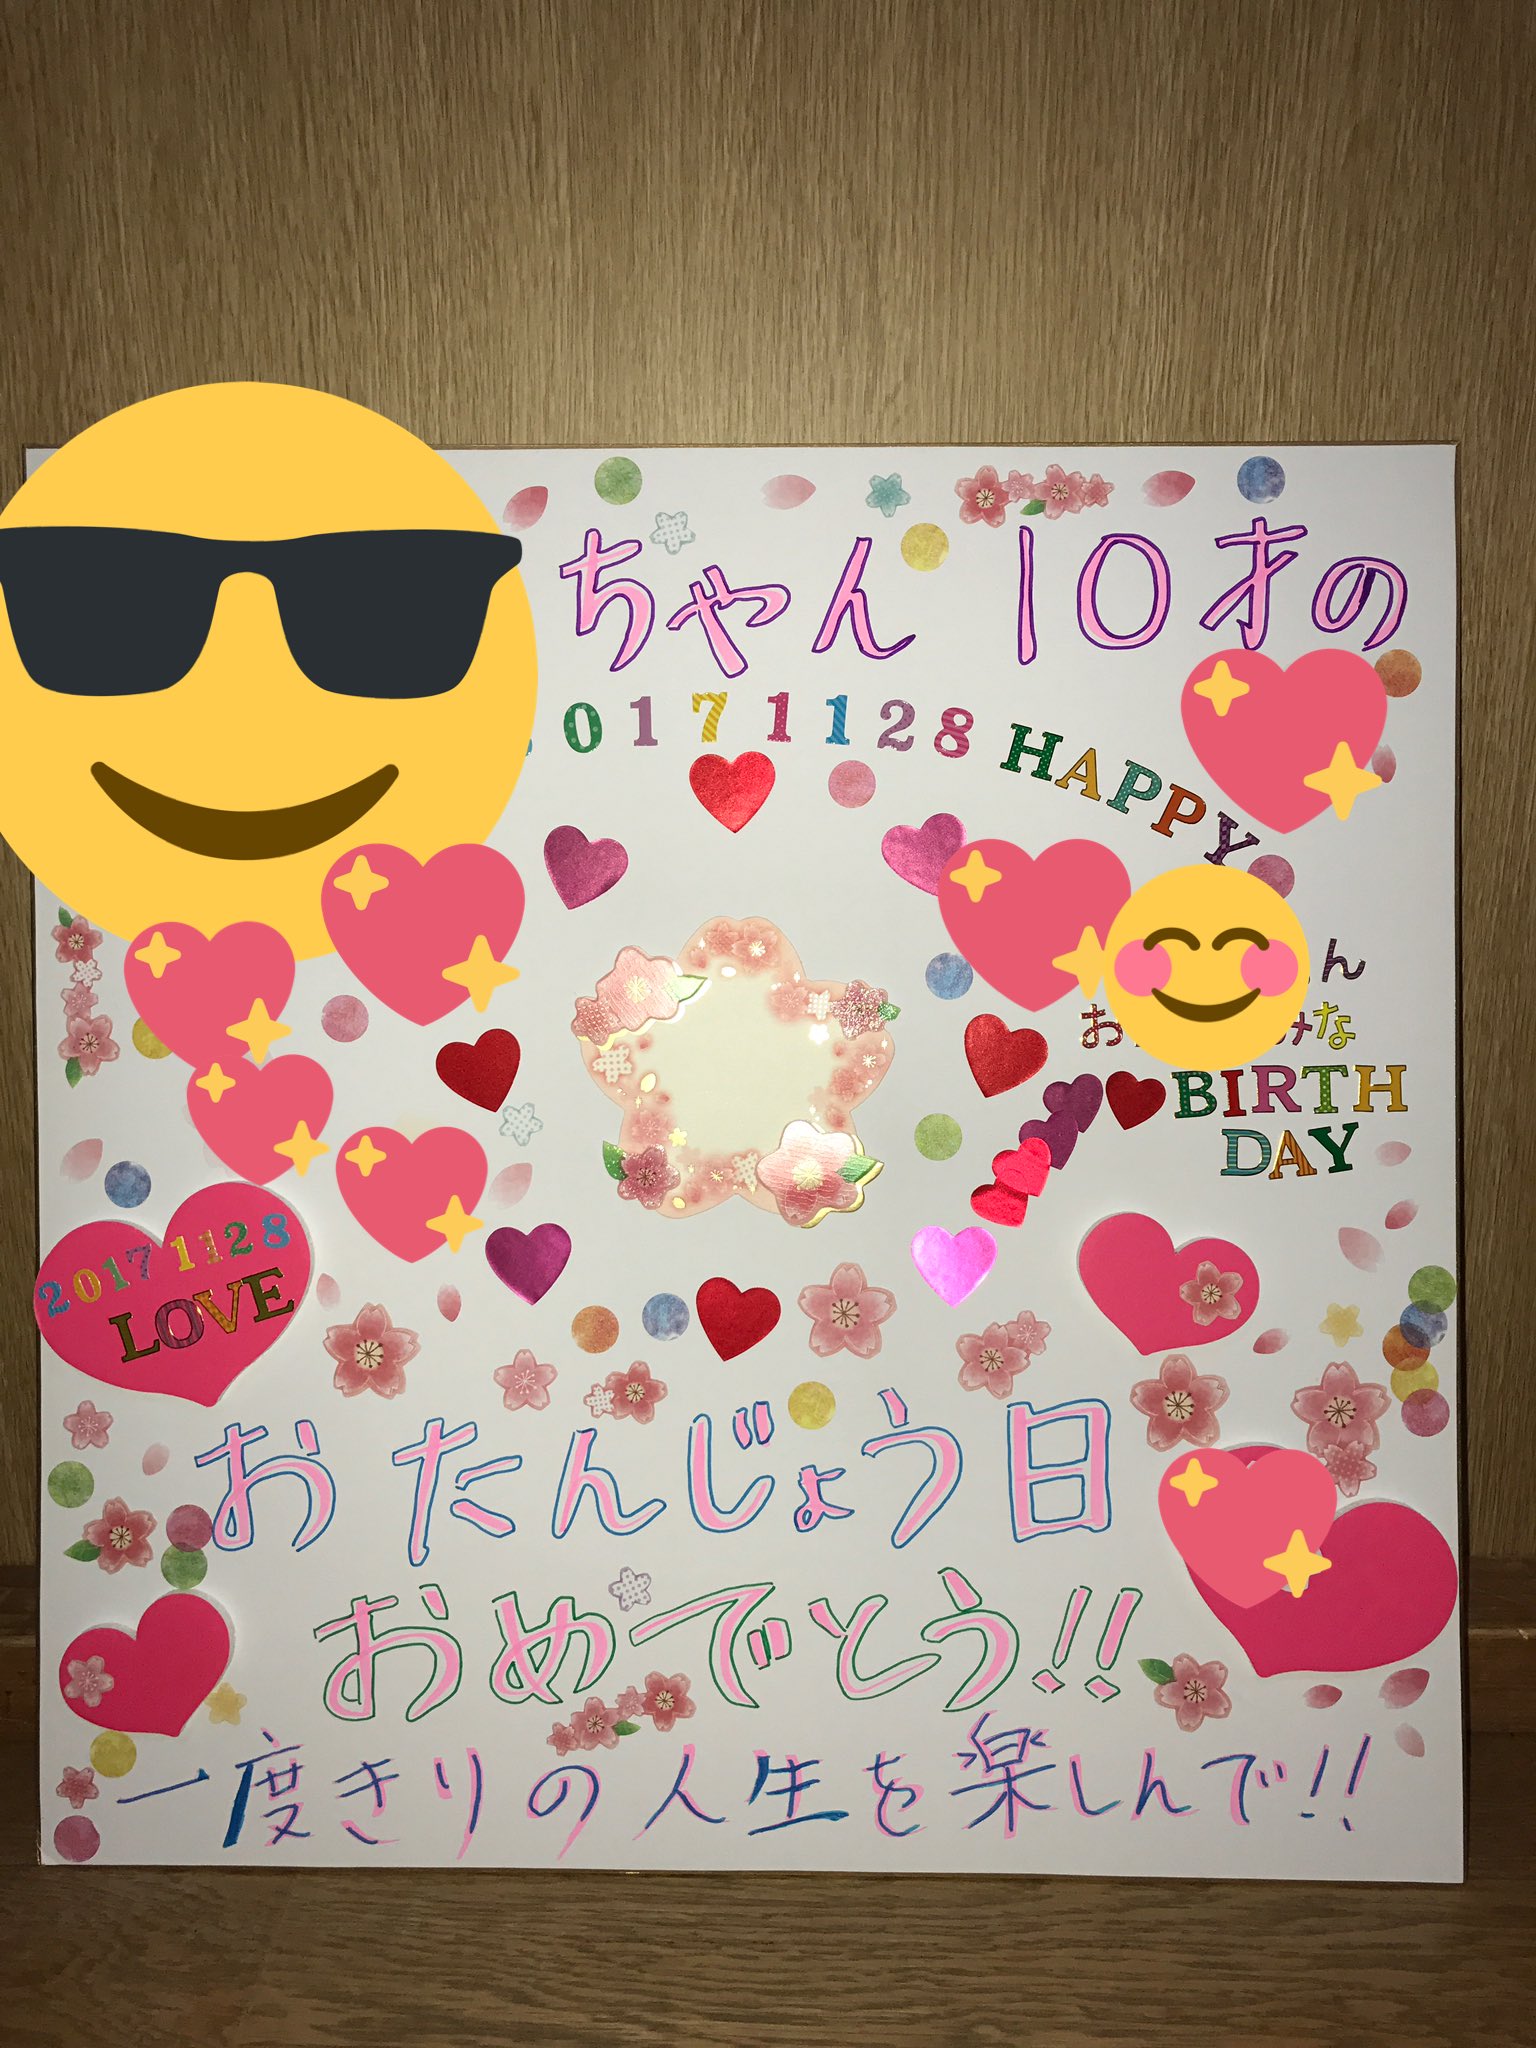 ちゃん 10才の
0171128
HAPPY
ん
お
みな
BIRTH
DAY
20171128
LOVE
おたんじょう日
おめでとう!!
一度きりの人生を楽しんで!!